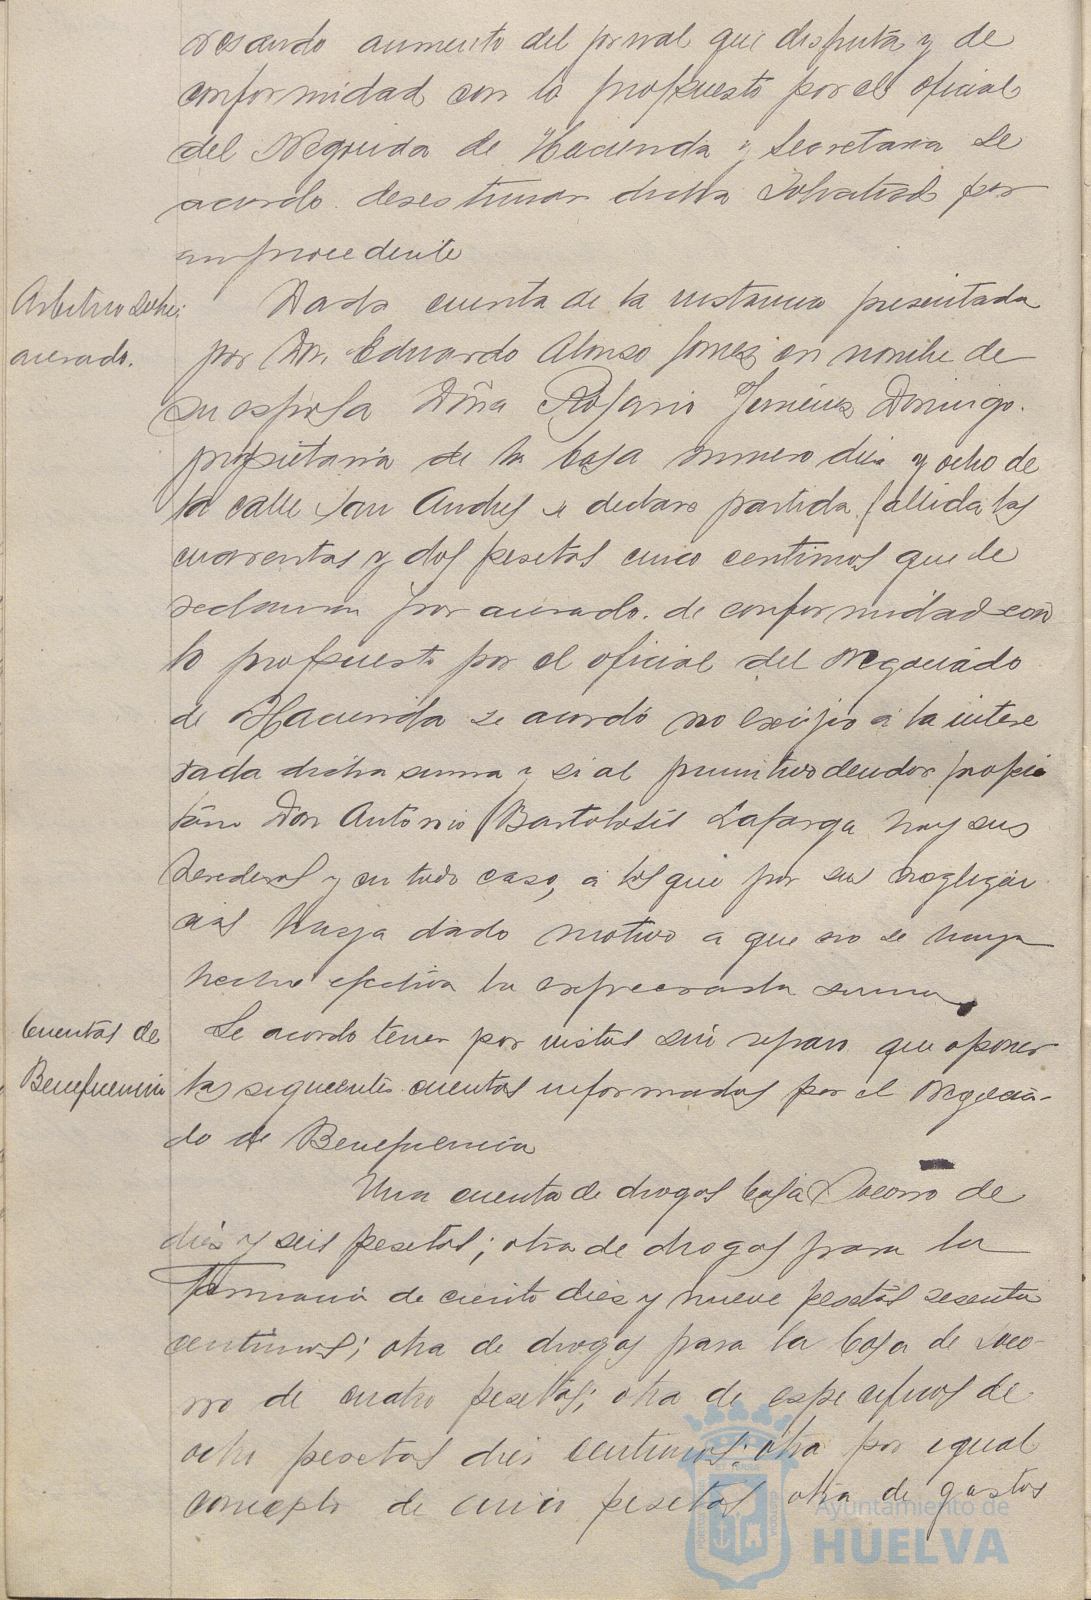 resando aumento del jornal que disfruta y de
conformidad con lo propuesto por el oficial
del Negociado de Hacienda y Secretaria se
acordo desestimar dicha solicitud por
improcedente
Arbitrio sobre
acerado.
Dada cuenta de la instancia presentada
por Don Eduardo Alonso Gomez en nombre de
su esposa Doña Rosario Jimenez Domingo.
propietaria de la Casa numero diez y ocho de
la calle San Andres se declare partida fallida las
cuarentas y dos pesetas cinco centimos que le
reclaman por acerado. de conformidad con
lo propuesto por el oficial del Negociado
de Hacienda se acordó no exijir a la intere
sada dicha suma y si al primitivo deudor propie
tario Don Antonio Bartolosis Lafarga hoy sus
herederos y en todo caso, a los que por su negligen
cias haya dado motivo a que no se haya
hecho efectiva la expresada suma.
Cuentas de
Beneficencia
Se acordo tener por vistas sin reparo que oponer
las siguientes cuentas informadas por el Negocia-
do de Beneficencia
Una cuenta de drogas Casa Socorro de
dies y seis pesetas; otra de drogas para la
Farmacia de ciento dies y nueve pesetas sesenta
centimos; otra de drogas para la Casa de Soco-
rro de cuatro pesetas; otra de especificos de
ocho pesetas dies centimos; otra por igual
concepto de cinco pesetas otra de gastos
Ayuntamiento de
HUELVA